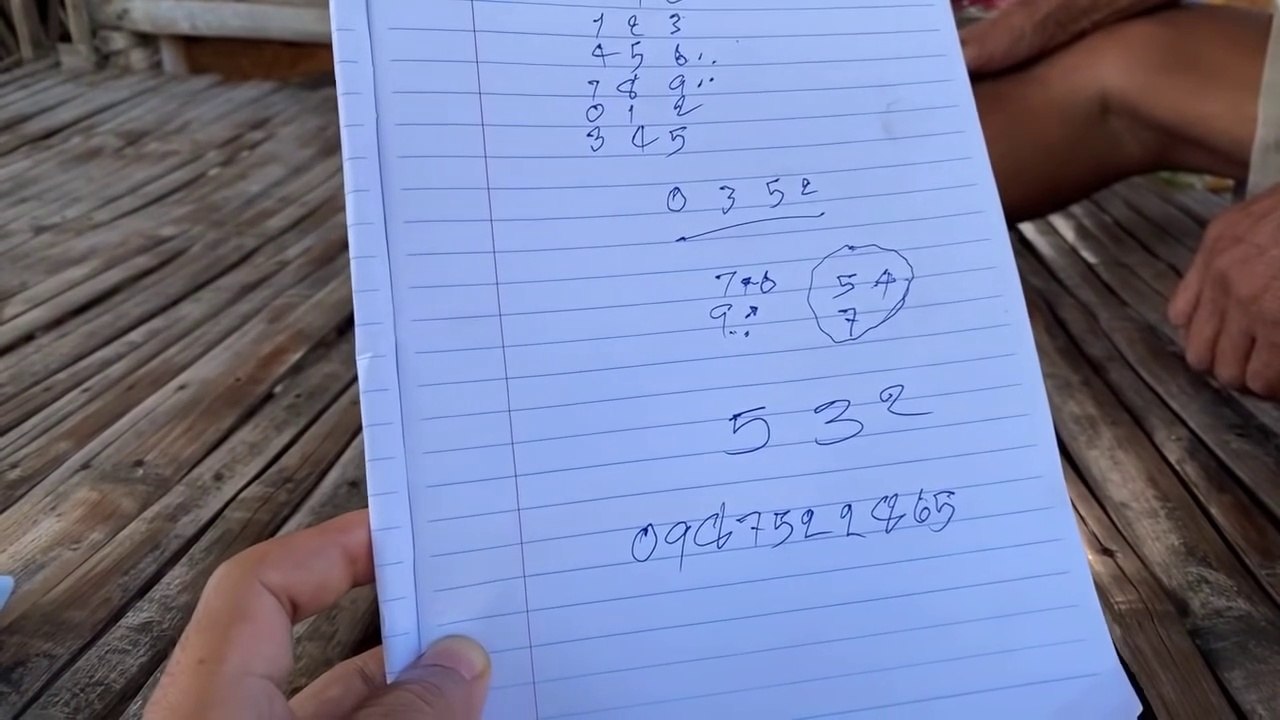 1 2 3
4 5 6..
7 8 9..
0 1 2
3 4 5
0 3 5 2
7+6 5 4
9.. 7
5 3 2
0987522865